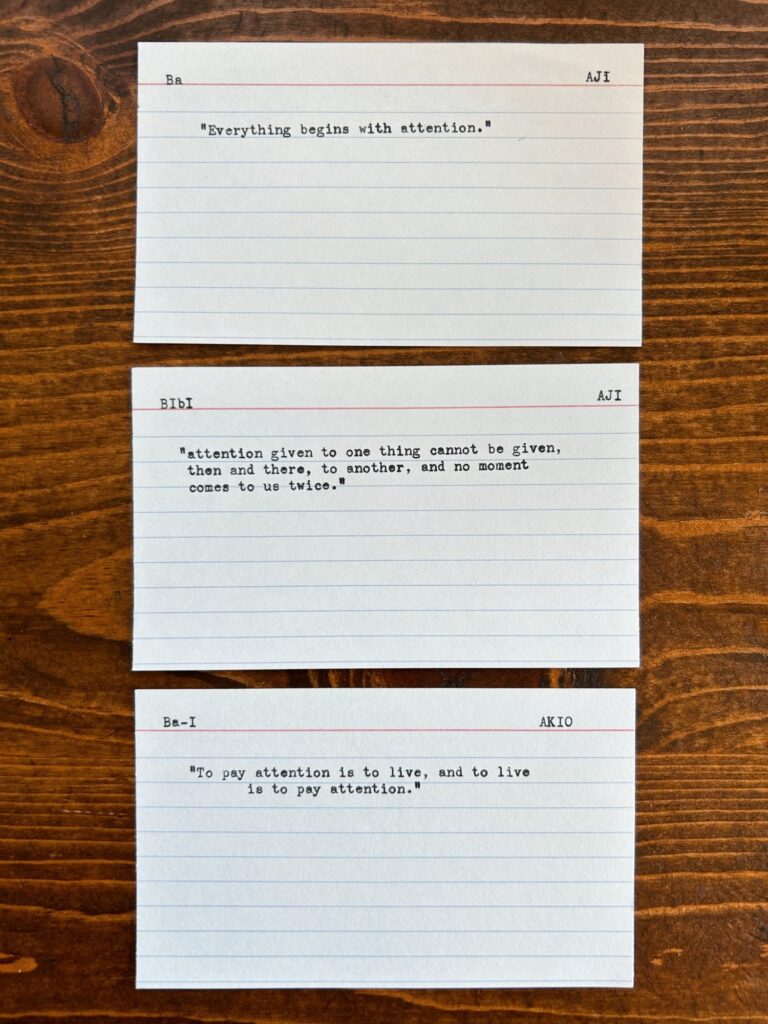 Ba AJI
"Everything begins with attention."
BIbI AJI
"attention given to one thing cannot be given,
then and there, to another, and no moment
comes to us twice."
Ba-I AKIO
"To pay attention is to live, and to live
is to pay attention."